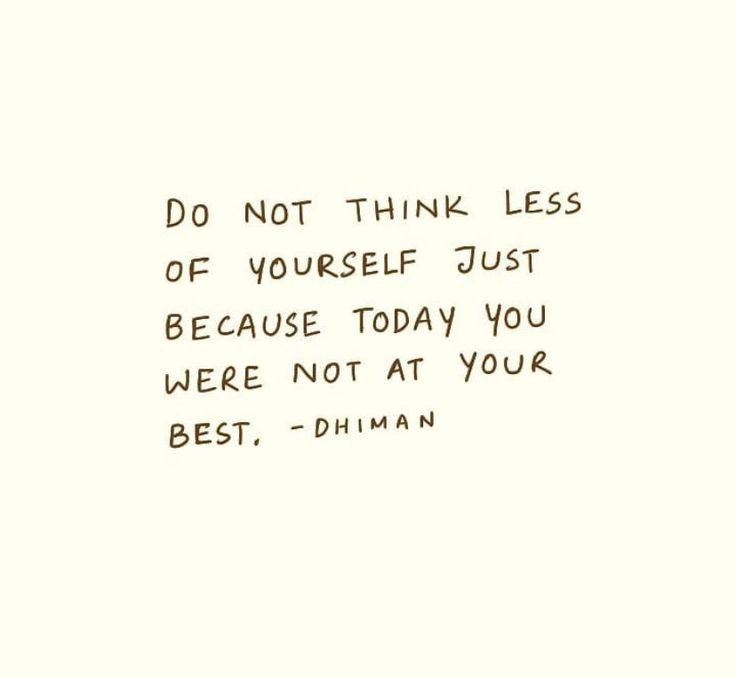 DO NOT THINK LESS
OF YOURSELF JUST
BECAUSE TODAY YOU
WERE NOT AT YOUR
BEST. - DHIMAN